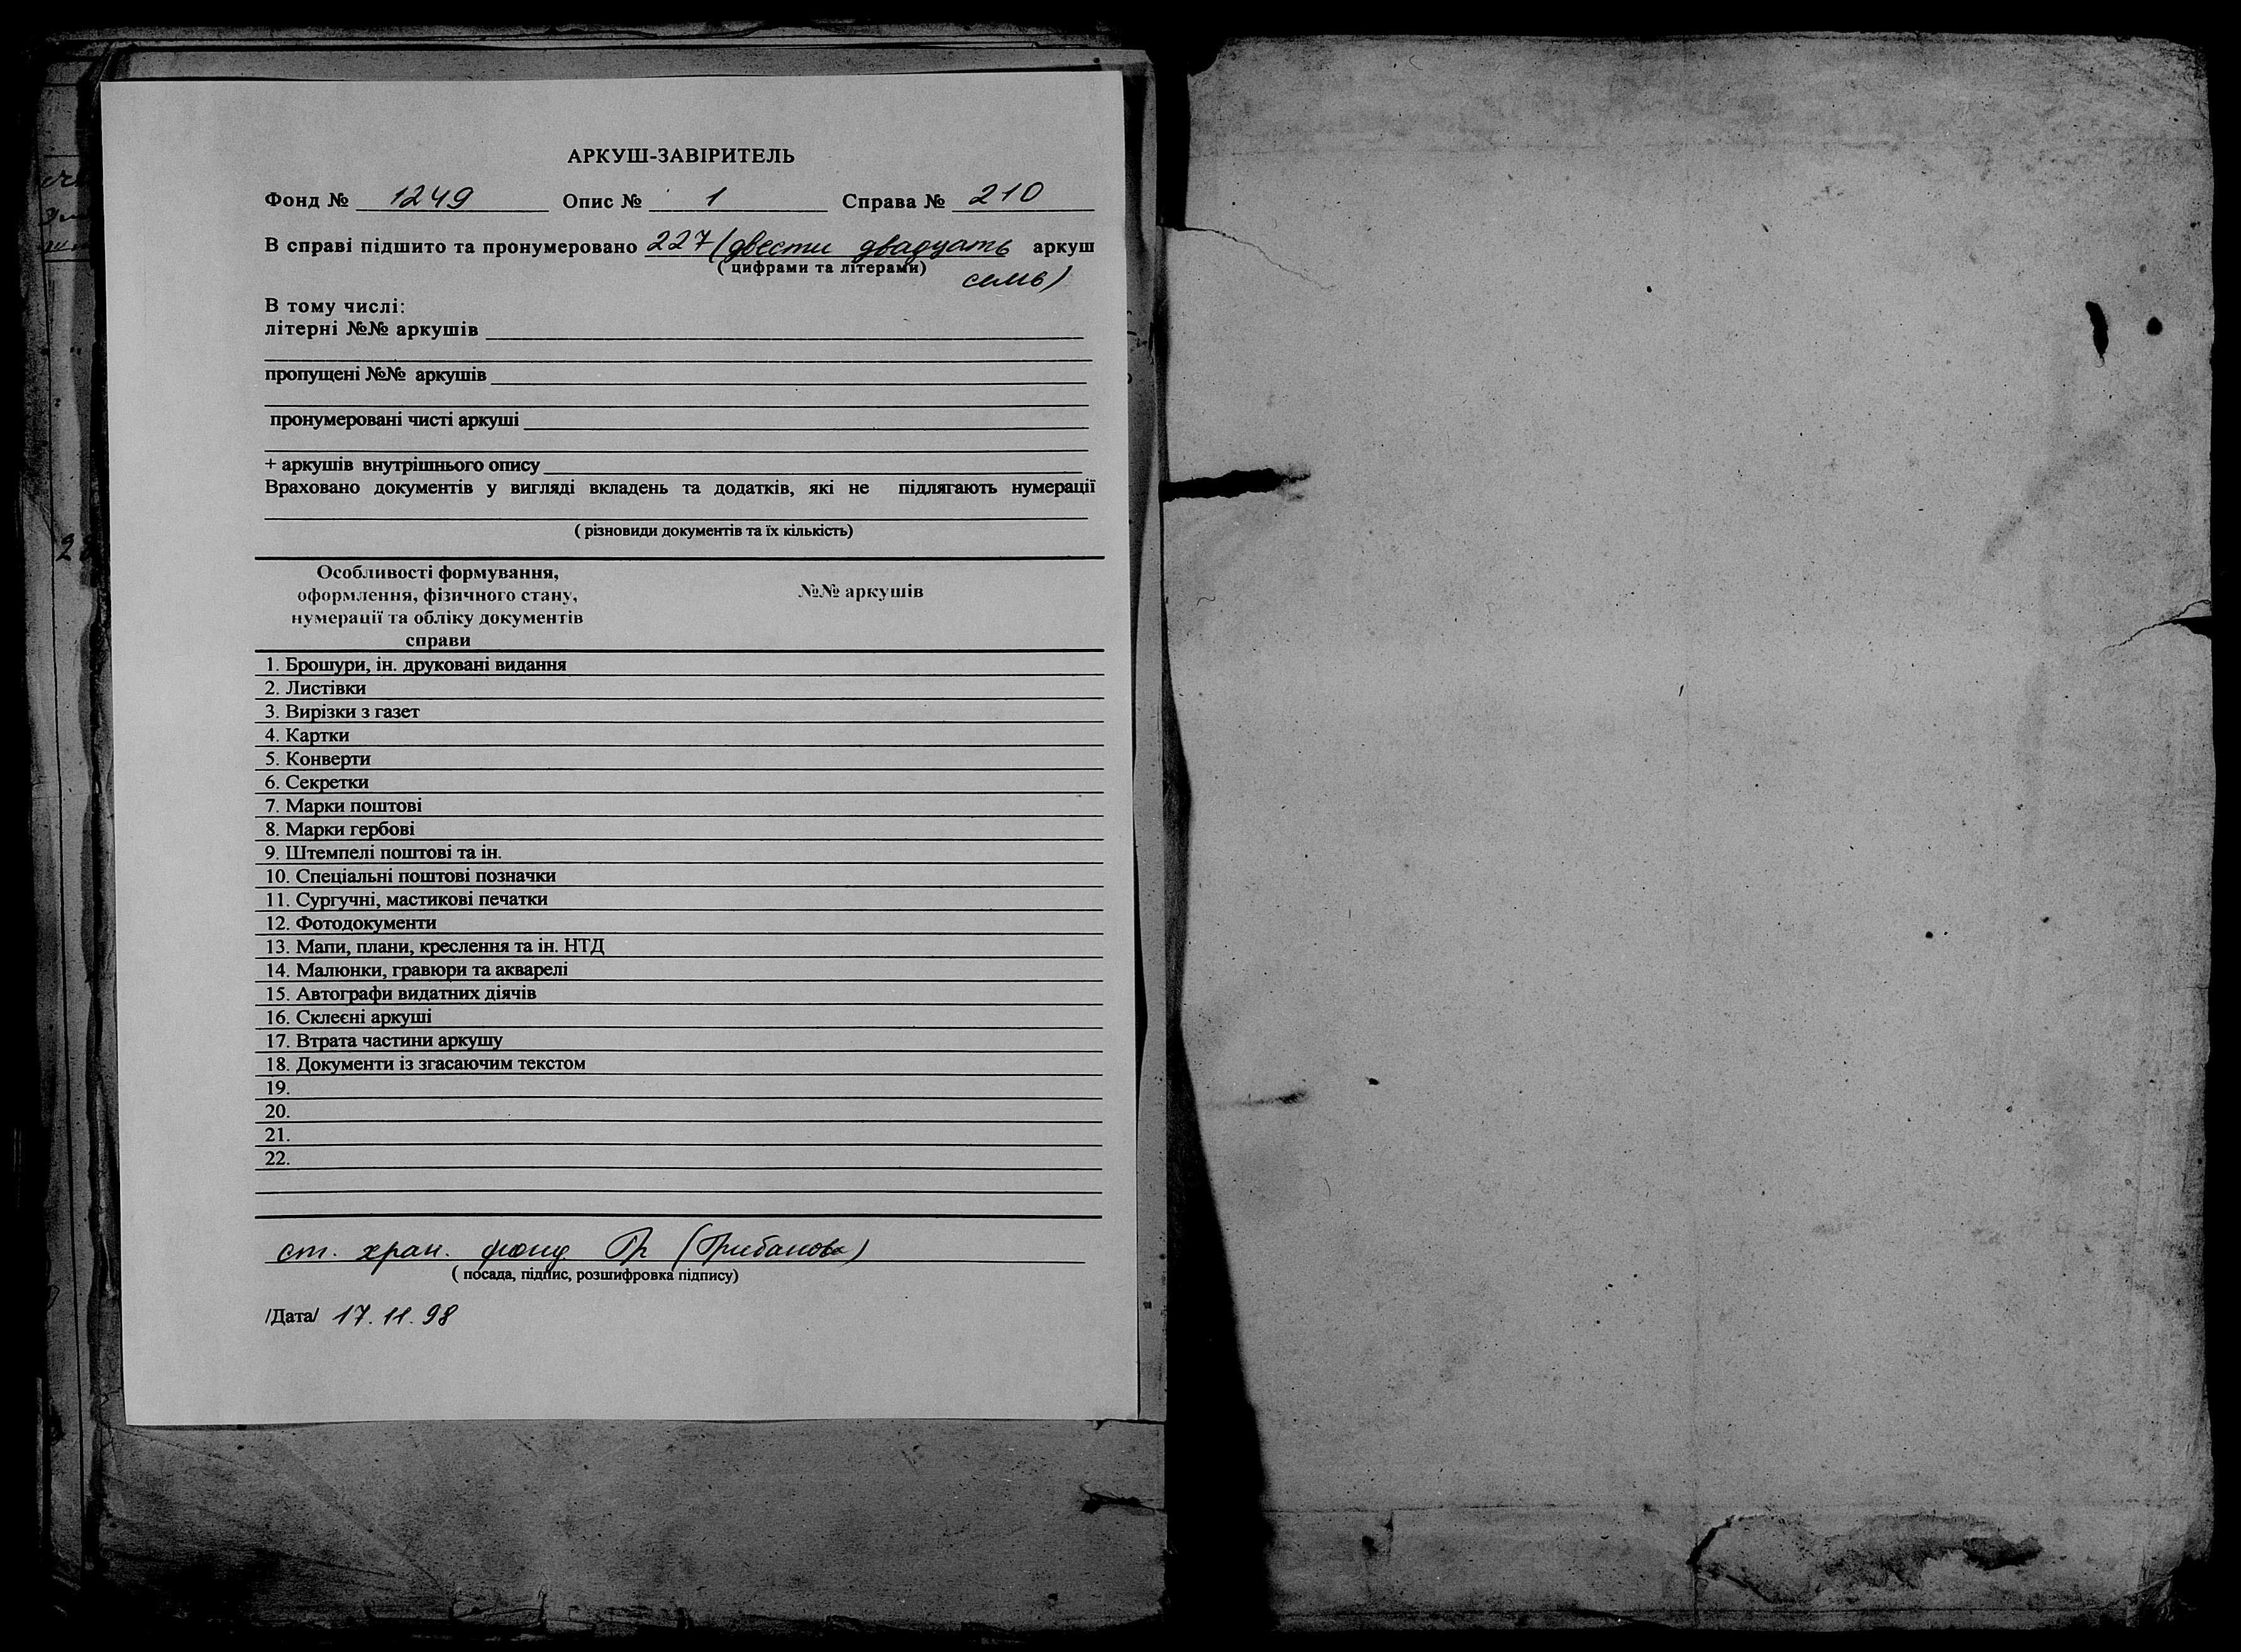 АРКУШ-ЗАВІРИТЕЛЬ
Фонд № 1249 Опис № 1 Справа № 210
В справі підшито та пронумеровано 227 (двести двадцать аркуш
( цифрами та літерами)
семь)
В тому числі:
літерні №№ аркушів
пропущені №№ аркушів
пронумеровані чисті аркуші
+ аркушів внутрішнього опису
Враховано документів у вигляді вкладень та додатків, які не підлягають нумерації
( різновиди документів та їх кількість)
Особливості формування,
оформлення, фізичного стану, №№ аркушів
нумерації та обліку документів
справи
1. Брошури, ін. друковані видання
2. Листівки
3. Вирізки з газет
4. Картки
5. Конверти
6. Секретки
7. Марки поштові
8. Марки гербові
9. Штемпелі поштові та ін.
10. Спеціальні поштові позначки
11. Сургучні, мастикові печатки
12. Фотодокументи
13. Мапи, плани, креслення та ін. НТД
14. Малюнки, гравюри та акварелі
15. Автографи видатних діячів
16. Склеєні аркуші
17. Втрата частини аркушу
18. Документи із згасаючим текстом
19.
20.
21.
22.
ст. хран. фонд. Гр (Грибанова)
( посада, підпис, розшифровка підпису)
/Дата/ 17.11.98